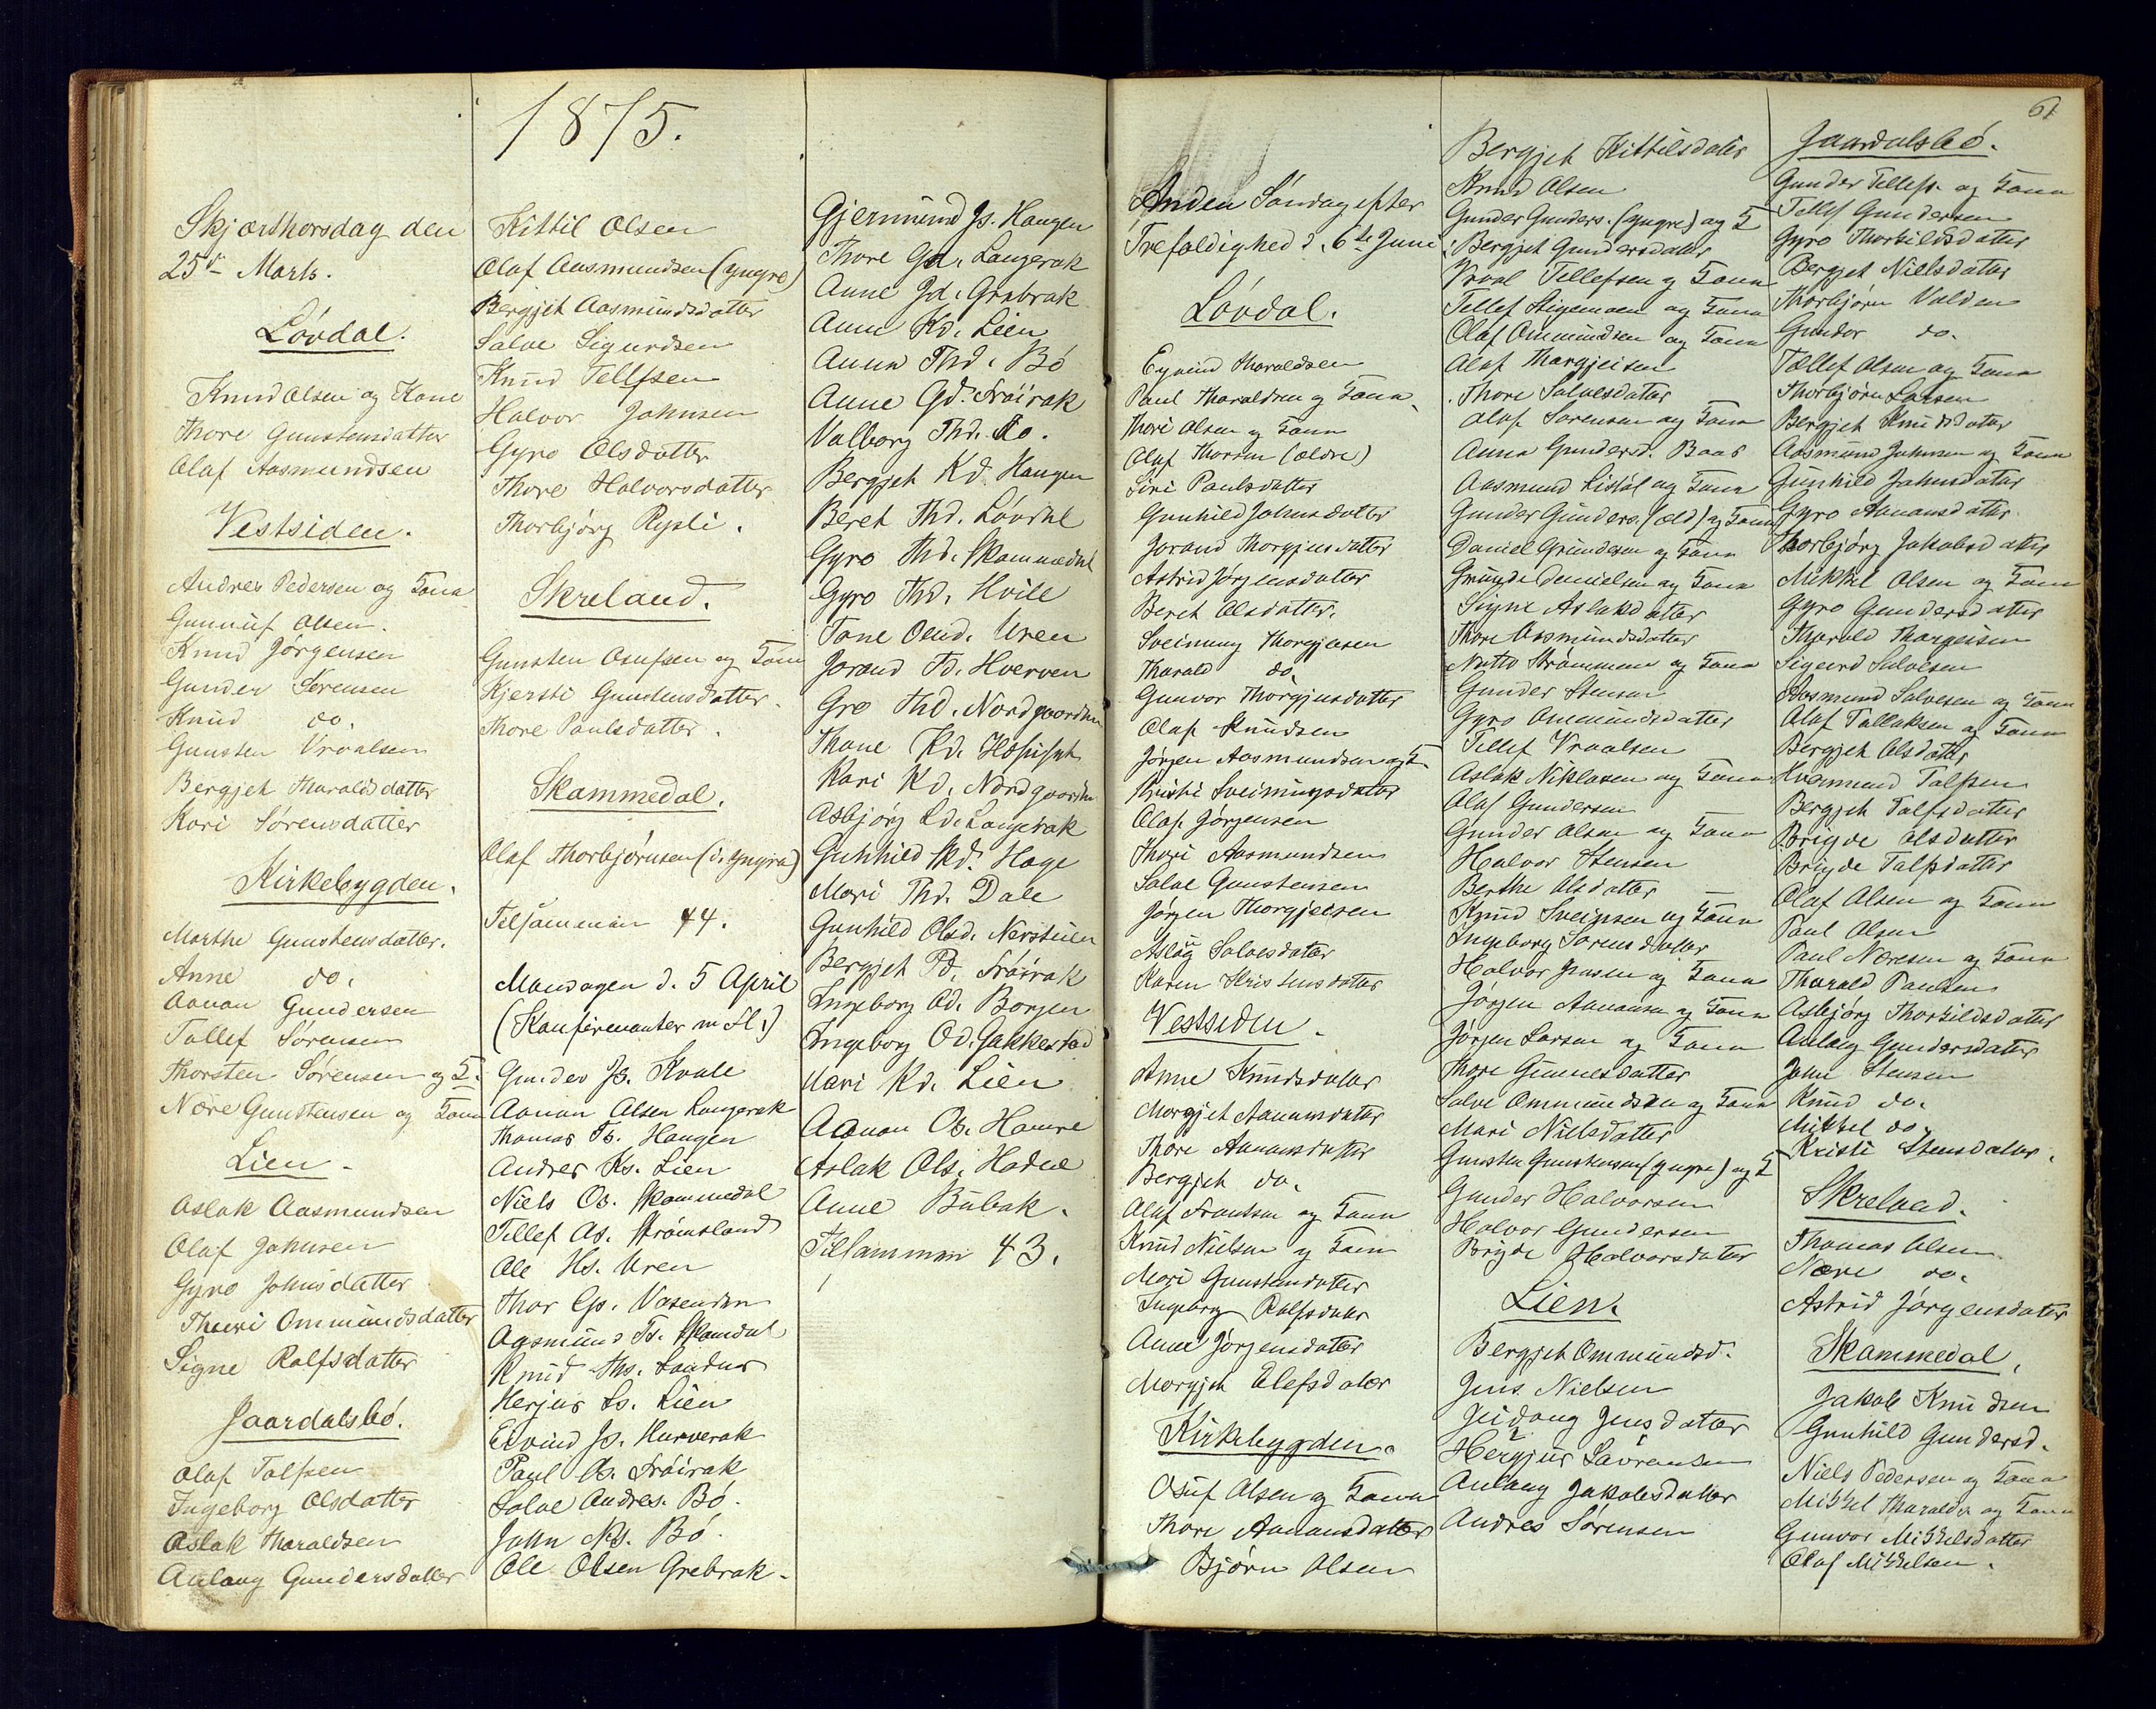 1875.
Skjærthorsdag den
25de Marts.
Lövdal.
Knud Olsen og Kone
Thore Gunstensdatter
Olaf Aasmundsen
Vestsiden.
Andres Pedersen og Kona
Gunnuf Olsen.
Knud Jörgensen
Gunder Sörensen
Knud do.
Gunsten Vraalsen
Bergjet Tharaldsdatter
Kari Sörensdatter
Kirkebygden.
Marthe Gunstensdatter.
Anne do.
Aanan Gundersen
Tallef Sörensen
Thorsten Sörensen og K.
Nære Gunstensen og Kona
Lien.
Aslak Aasmundsen
Olaf Johnsen
Gyro Johnsdatter
Ommundsdatter
Signe Rolfsdatter
Jaardalsbö.
Olaf Talfsen
Ingeborg Olsdatter
Aslak Tharaldsen
Aulaug Gundersdatter
Kittil Olsen
Olaf Aasmundsen (yngre)
Bergjet Aasmundsdatter
Salve Sigurdsen
Knud Tellfsen
Halvor Johnsen
Gyro Olsdatter
Thore Halvorsdatter
Thorbjörg Rysli.
Skreland.
Gunsten Osufsen og Kona
Kjersti Gunstensdatter.
Thore Paulsdatter.
Skammedal.
Olaf Thorbjörnsen (d. yngre)
Tilsammen 44.
Mandagen d. 5 April
(Konfirmanter m Fl.)
Gunder Js. Kvale
Aanan Olsen Langerak
Thomas Ts. Haugen
Andres Ks. Lien
Niels Os. Skammedal
Tellef As. Strömsland
Ole Hs. Uren
Thor Gs. Vasenden
Aasmund Ts. Skamdal
Knud Ths. Landnes
Herjus Ls. Lien
Eivind Js. Hurverak
Paul Os. Fröirak
Salve Andres. Bö.
John Ns. Bö.
Ole Olsen Grebrak.
Gjermund Js. Haugen
Thore Gd. Langerak
Anne Jd. Grebrak
Anne Kd. Lien
Anne Thd. Bö
Anne Gd. Fröirak
Valborg Thd. do.
Bergjet Kd. Haugen
Beret Thd. Lövdal
Gyro Thd. Skammedal
Gyro Thd. Hvile
Tone Oend. Uren
Jorand Td. Hverven
Gro Thd. Nordgaarden
Thone Kd.
Kari Kd. Nordgaarden
Asbjörg Ld. Langerak
Gunhild Kd. Hage
Mari Thd. Dale
Gunhild Olsd. Nerstuen
Bergjet Pd. Fröirak
Ingeborg Od. Borgen
Ingeborg Od. Gakkestad
Mari Kd. Lien
Aanon Os. Hamre
Aslak Ols.
Anne Bubak.
Tilsammen 43.
61
Anden Söndag efter
Trefoldighed d. 6te Juni
Lövdal.
Eyvind Tharaldsen
Paul Tharaldsen og Kona.
Thori Olsen og Kona
Olaf Thorsen (ældre)
Siri Paulsdatter
Gunhild Johnsdatter
Jorand Thorgjusdatter
Astrid Jörgensdatter
Beret Olsdatter.
Sveinung Thorgjusen
Tharald do.
Gunvor Thorgjusdatter
Olaf Knudsen
Jörgen Aasmundsen og K.
Kristi Sveinungsdatter
Olaf Jörgensen
Thori Aasmundsen
Salve Gunstensen
Jörgen Thorgjussen
Aslaug Salvesdatter
Karen Kristensdatter
Vestsiden.
Anne Knudsdatter
Morgjet Aanansdatter
Thore Aanansdatter
Bergjet do.
Olaf Frantsen og Kona
Knud Nielsen og Kona
Mari Gunstensdatter
Ingeborg Rolfsdatter
Anne Jörgensdatter
Morgjet Elefsdatter
Kirkebygden.
Osuf Olsen og Kona
Thore Aanansdatter
Björn Olsen
Bergjet Kittilsdatter
Knud Olsen
Gunder Gunders. (yngre) og K
Bergjet Gundersdatter
Vraal Tellefsen og Kona
Tellef Stigemoen og Kona
Olaf Ommundsen og Kona
Olaf Thorgjeisen
Thore Salvesdatter
Olaf Sorensen og Kona
Anna Gundersd. Baas
Aasmund Listöl og Kona
Gunder Gunders. (æld) og Kona
Daniel Gundersen og Kona
Danielsen og Kona
Signe Aslaksdatter
Thore Aasmundsdatter
Strömmene og Kona
Gunder Stensen
Gyro Ommundsdatter
Tellef Vraalsen
Aslak Niklasen og Kona
Olaf Gundersen
Gunder Olsen og Kona
Halvor Stensen
Berthe Olsdatter
Knud Sveinsen og Kona
Ingeborg Sörensdatter
Halvor Jensen og Kona
Jörgen Aanansen og Kona
Jörgen Larsen og Kona
Thore Gunnesdatter
Salve Ommundsen og Kona
Mari Nielsdatter
Gunsten Gunstensen (yngre) og K
Gunder Halvorsen
Halvor Gundersen
Brigde Halvorsdatter
Lien.
Bergjet Ommundsd.
Jens Nielsen
Jensdatter
Hergjus Lavransen
Aulaug Jakobsdatter
Andres Sörensen
Jaardalsbö.
Gunder Tellefs. og Kona
Tellef Gundersen
Gyro Thorkildsdatter
Bergjet Nielsdatter
Thorbjörn Valden
Gunder do.
Tellef Olsen og Kona
Thorbjörn Larsen
Bergjet Knudsdatter
Aasmund Johnsen og Kona
Gunhild Johnsdatter
Gyro Aanansdatter
Thorbjörg Jakobsdatter
Mikkel Olsen og Kona
Gyro Gundersdatter
Tharald Thorgeisen
Sigurd Salvesen
Aasmund Salvesen og Kona
Olaf Tallaksen og Kona
Bergjet Olsdatter
Kvenmund Talfsen
Bergjet Talfsdatter
Brigde Olsdatter
Brigde Talfsdatter
Olaf Olsen og Kona
Paul Olsen
Paul Næresen og Kona
Tharald Paulsen
Asbjörg Thorkildsdatter
Aulaug Gundersdatter
John Stensen
Knud do.
Mikkel do.
Kristi Stensdatter.
Skreland.
Thomas Olsen
Nære do.
Astrid Jörgensdatter
Skammedal.
Jakob Knudsen
Gunhild Gundersd.
Niels Pedersen og Kona
Mikkel Tharalds. og Kona
Gunvor Mikkelsdatter
Olaf Mikkelsen.